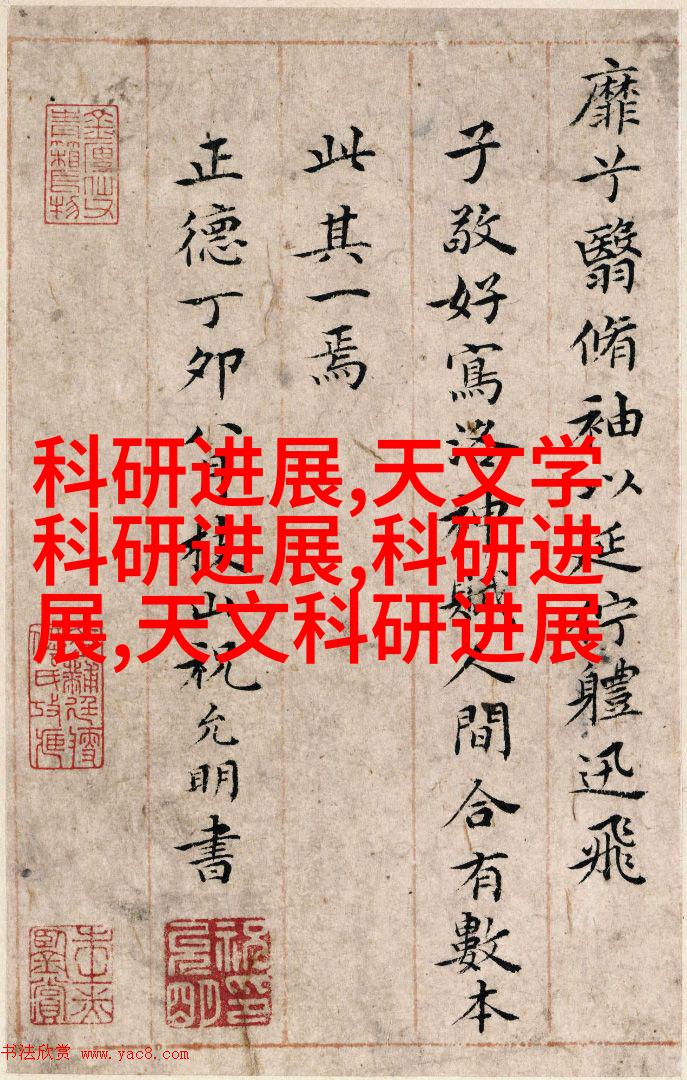 靡兮翳脩袖以延佇體迅飛
子敬好寫洛神賦人間合有數本
此其一焉
正德丁卯八月枝山祝允明書
科研进展,天文学
科研进展,科研进
展,天文科研进展
书法欣赏 www.yac8.com